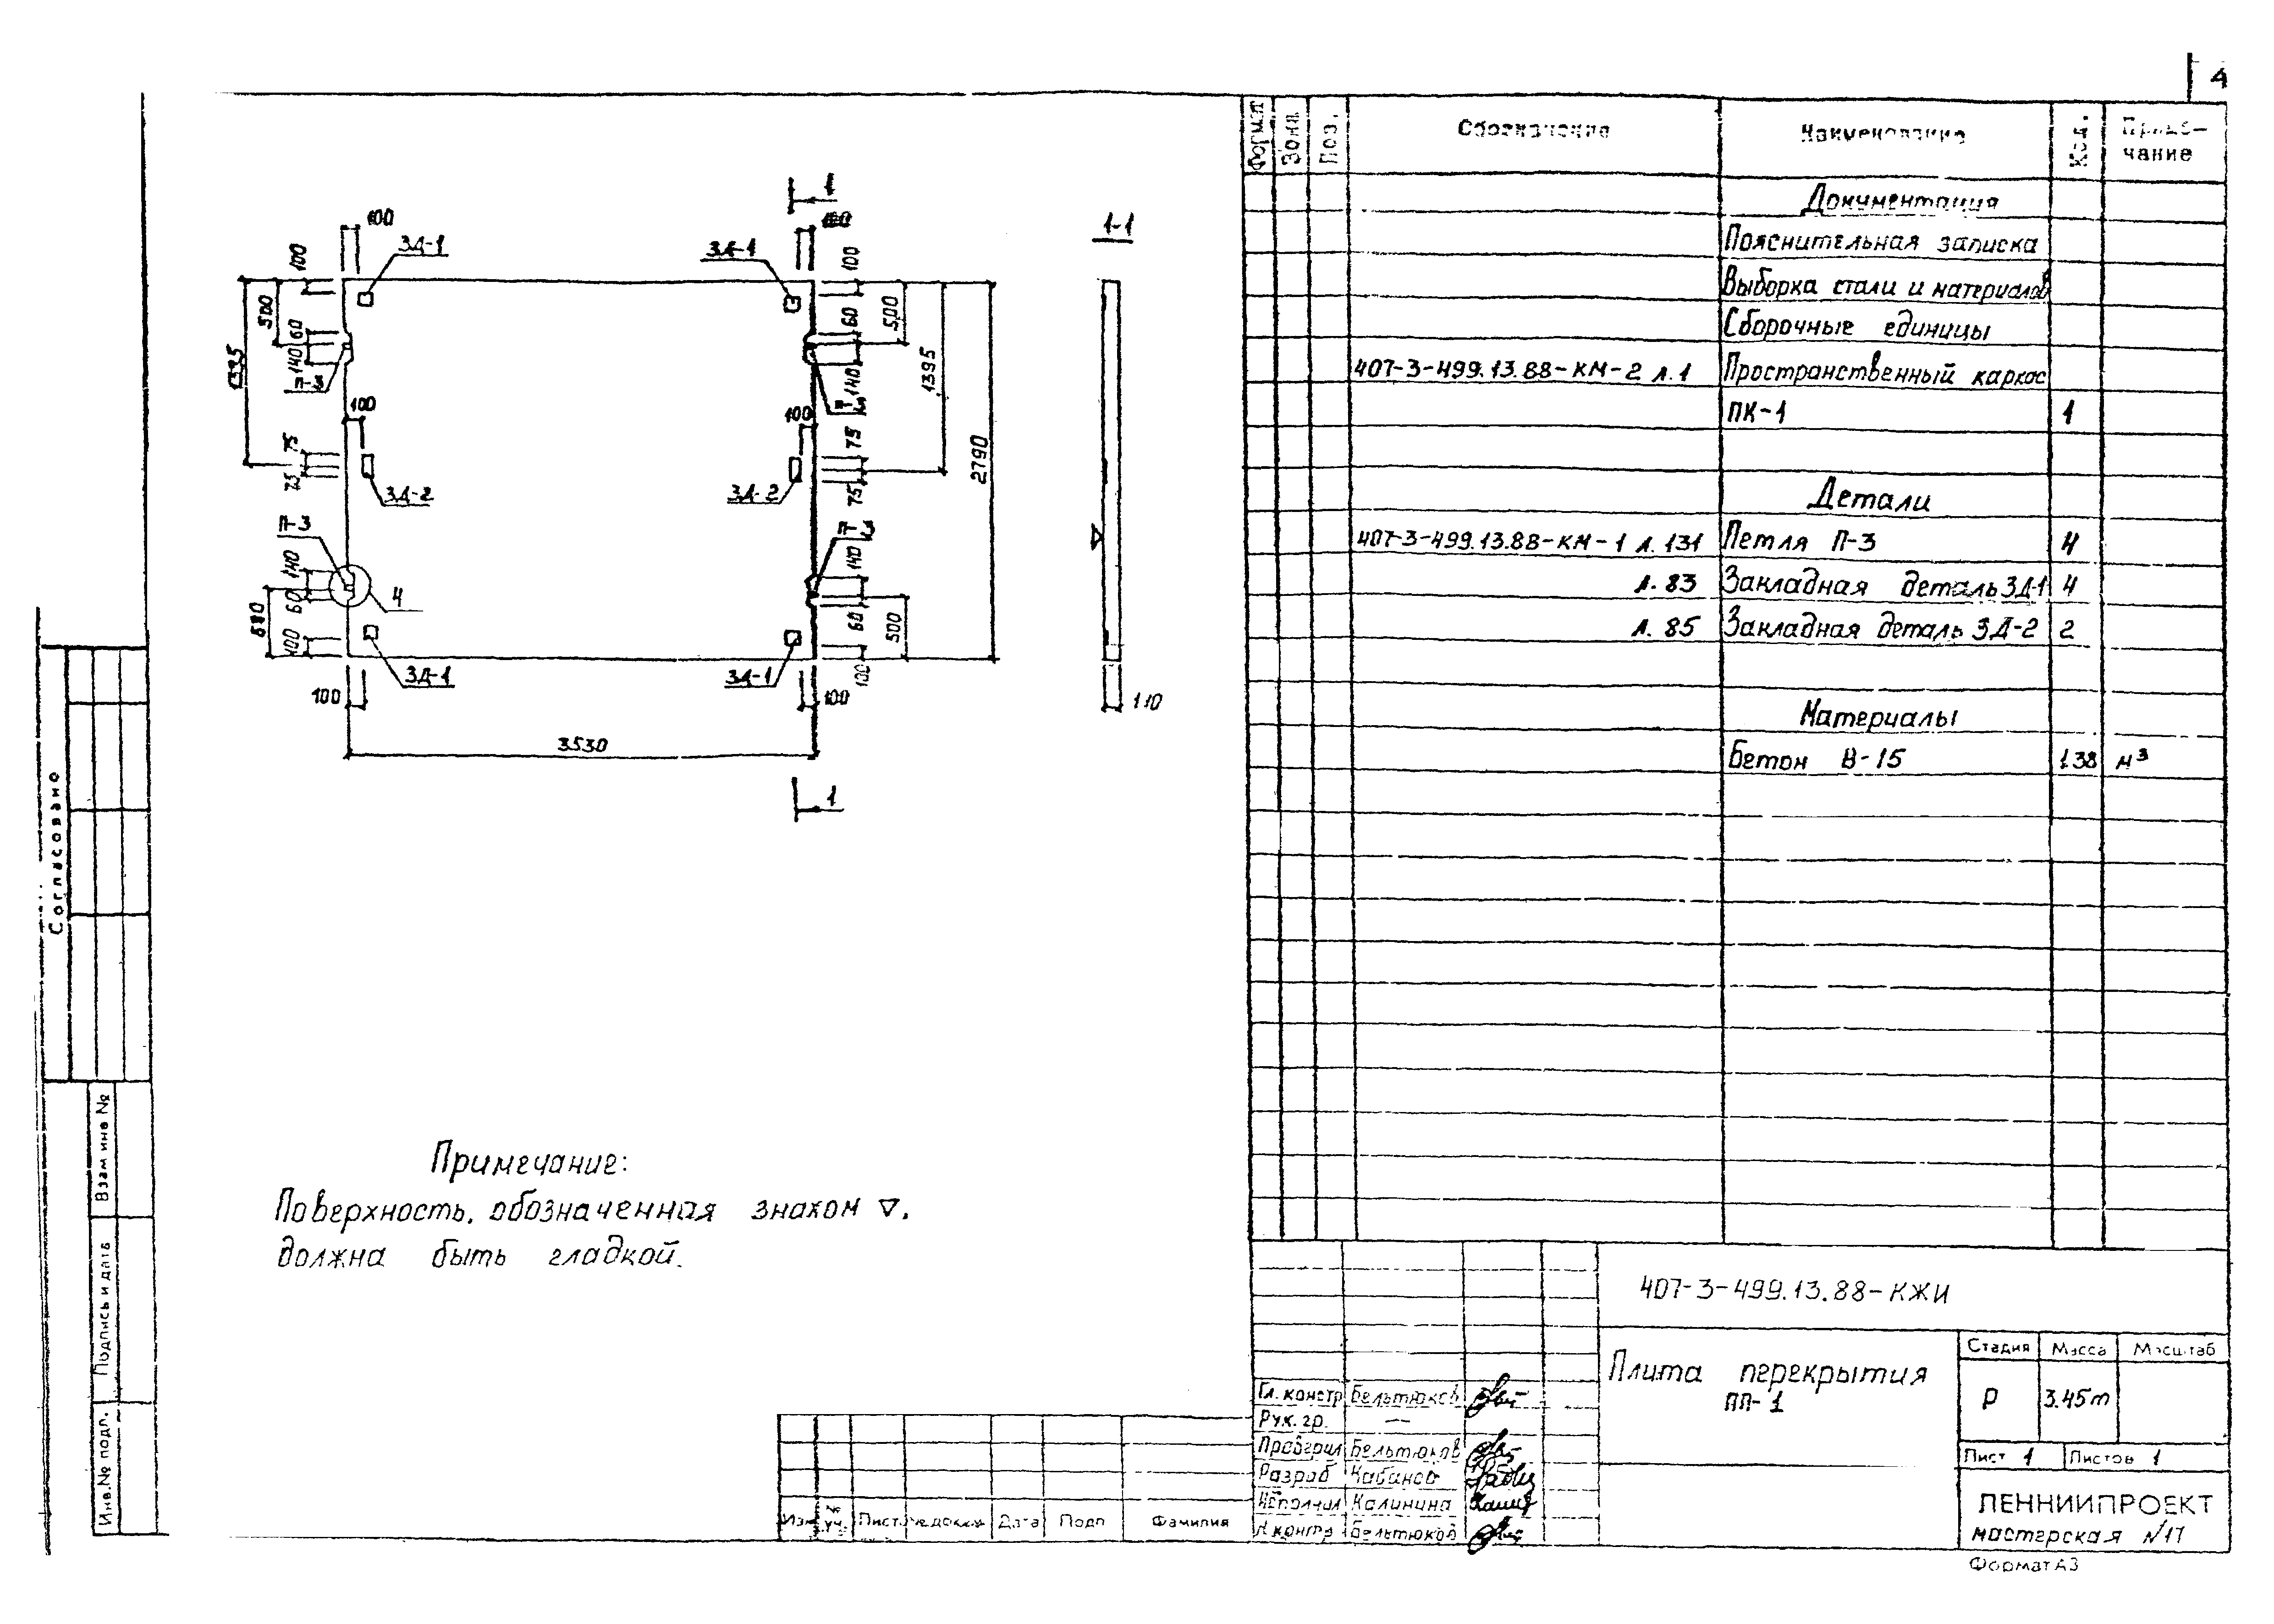 4
Формат
Зона
Поз.
Обозначение
Наименование
Кол.
Приме-
чание
Документация
Пояснительная записка
Выборка стали и материалов
Сборочные единицы
407-3-499.13.88-КМ-2 л.1 Пространственный каркас
ПК-1 1
Детали
407-3-499.13.88-КМ-1 л.131 Петля П-3 4
л.83 Закладная деталь ЗД-1 4
л.85 Закладная деталь ЗД-2 2
Материалы
Бетон В-15 1.38 м³
1
1-1
100
ЗД-1
ЗД-1
100
100
500
60
140
П-3
1395
100
75
75
ЗД-2
П-3
140
60
100
4
ЗД-1
100
100
60
500
140
1395
100
75
75
ЗД-2
140
60
500
100
2790
ЗД-1
100
3530
110
1
Примечание:
Поверхность, обозначенная знаком ▽,
должна быть гладкой.
Согласовано
Взам инв №
Подпись и дата
Инв.№ подл.
407-3-499.13.88-КЖИ
Плита перекрытия
ПП-1
Стадия Масса Масштаб
Р 3.45т
Лист 1 Листов 1
ЛЕННИИПРОЕКТ
мастерская №17
Формат А3
Гл. констр Бельтюков
Рук. гр. —
Проверил Бельтюков
Разраб Кабанов
Исполнил Калинина
Н контр Бельтюков
Изм уч. Лист № докум Дата Подп Фамилия